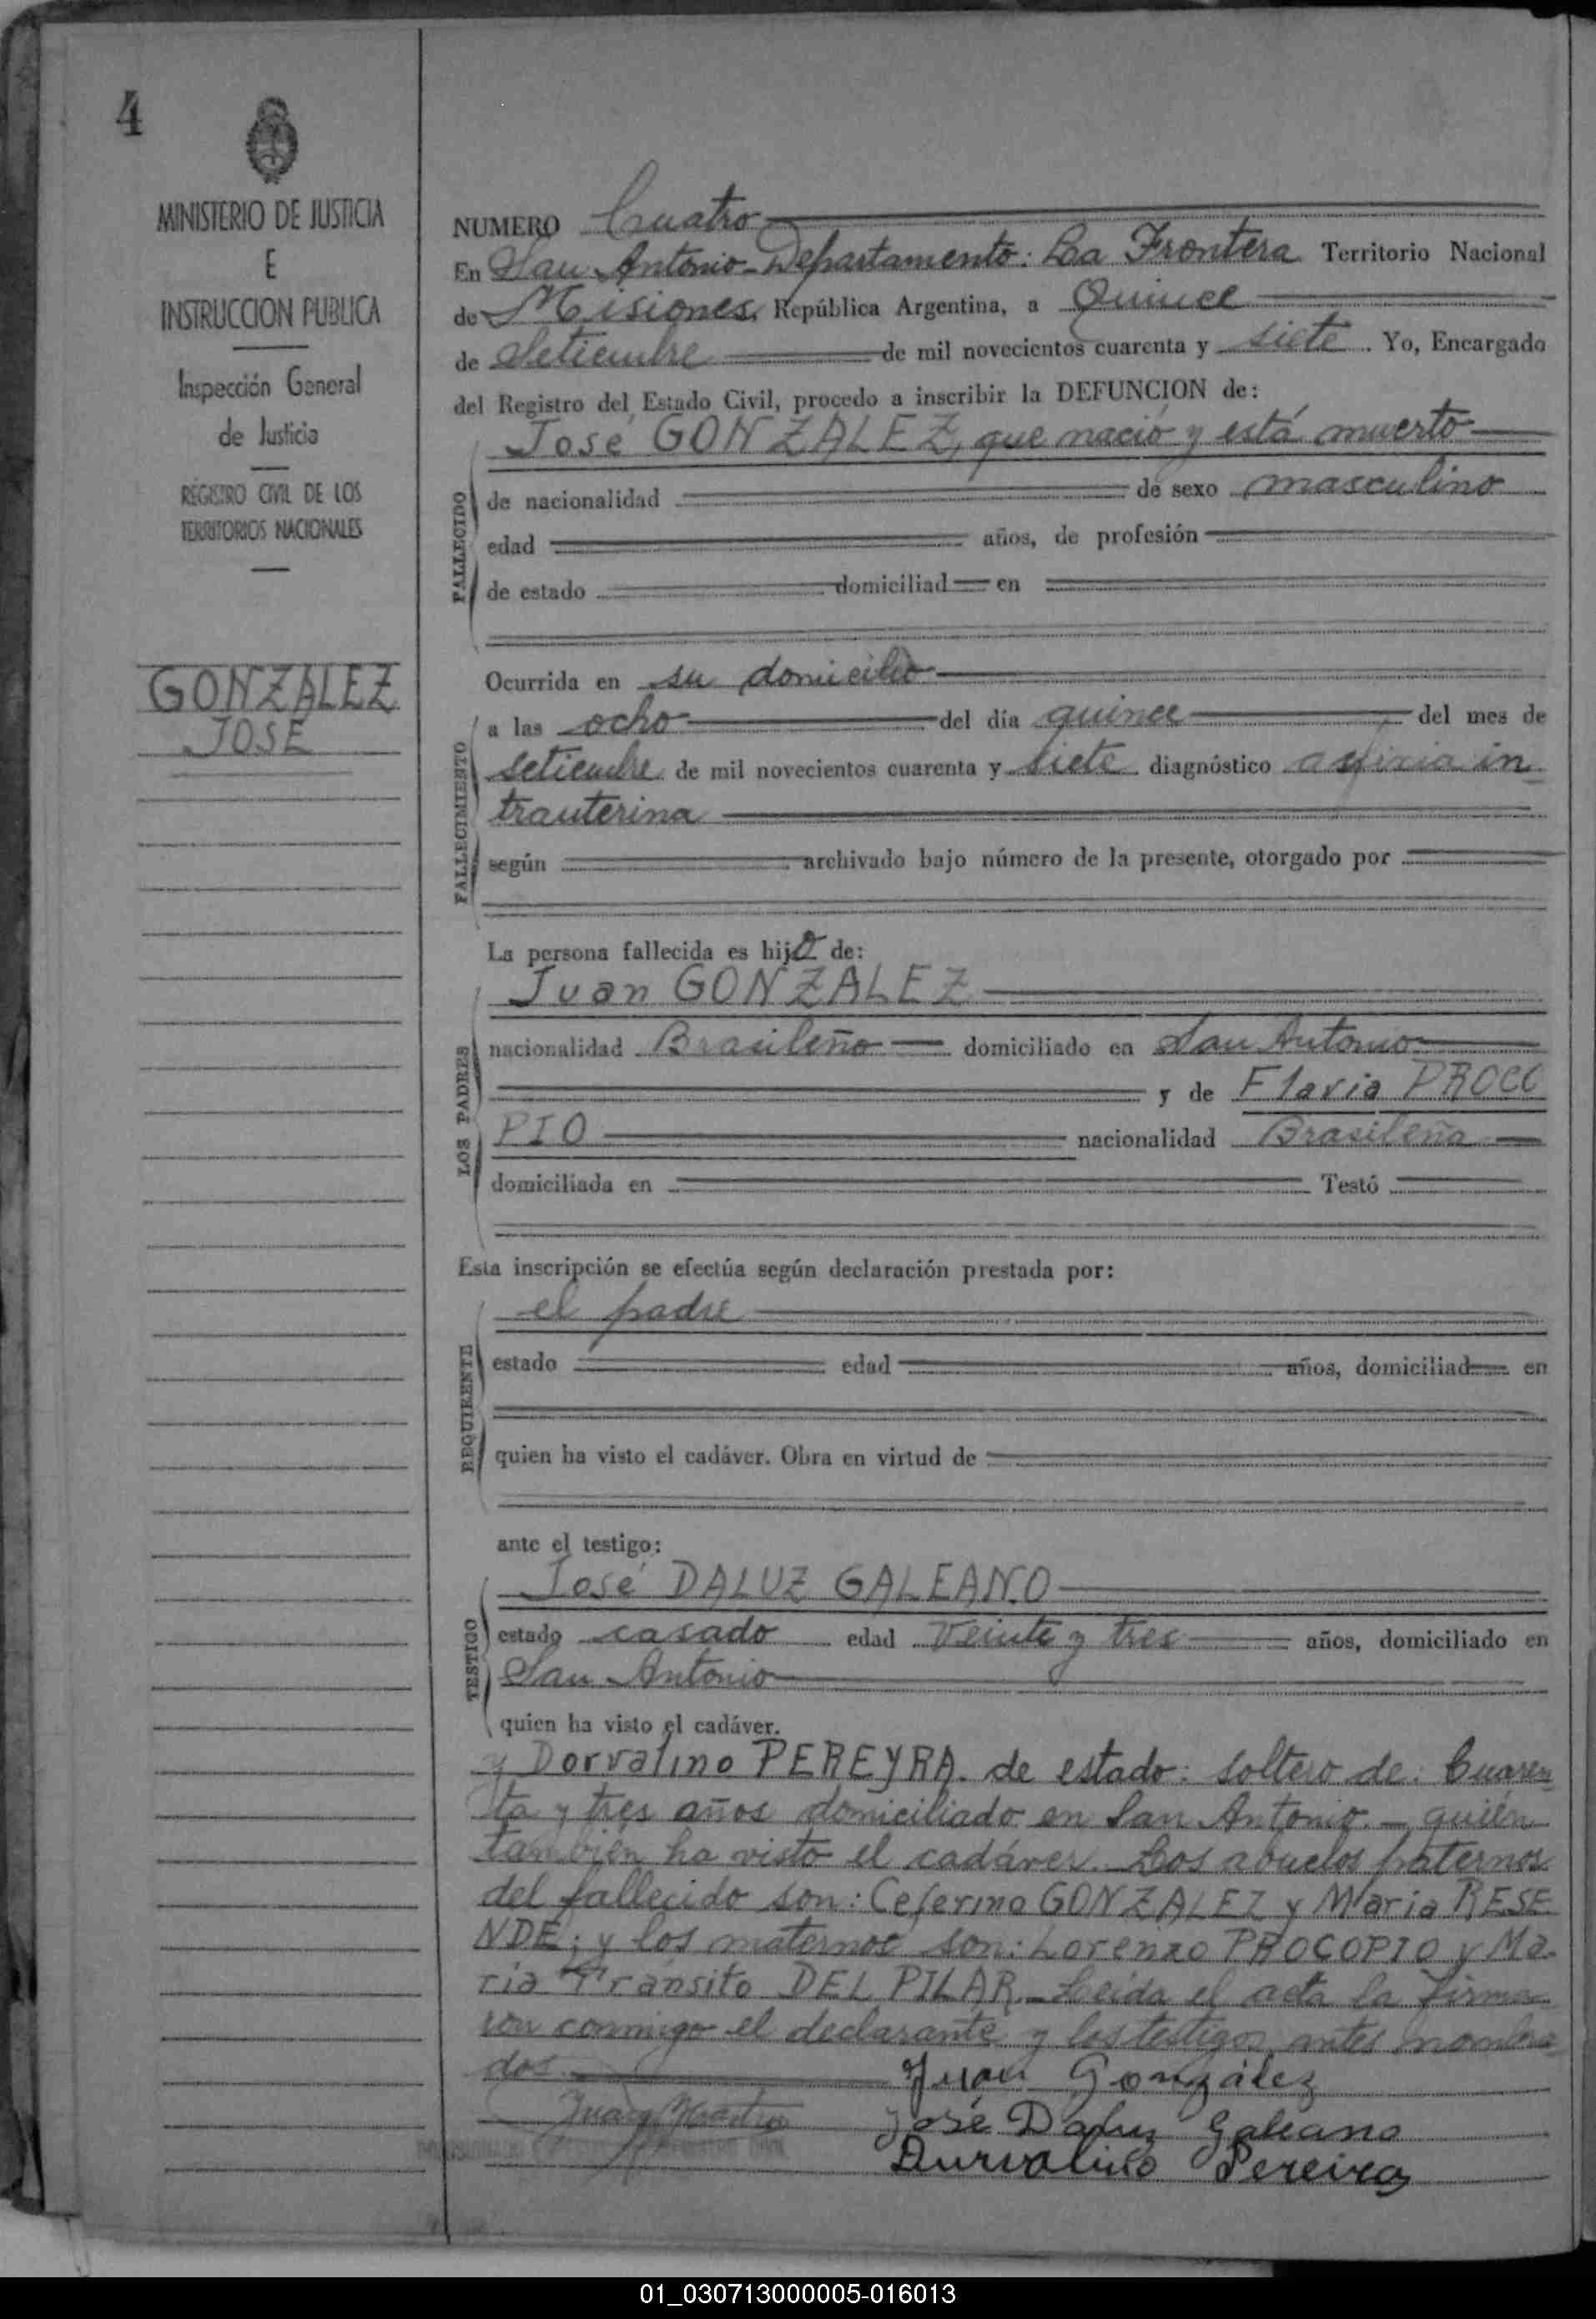 4
MINISTERIO DE JUSTICIA
E
INSTRUCCION PUBLICA
Inspección General
de Justicia
REGISTRO CIVIL DE LOS
TERRITORIOS NACIONALES
GONZALEZ
JOSE
NUMERO Cuatro
En San Antonio-Departamento: La Frontera Territorio Nacional
de Misiones, República Argentina, a Quince
de Setiembre de mil novecientos cuarenta y siete. Yo, Encargado
del Registro del Estado Civil, procedo a inscribir la DEFUNCION de:
José GONZALEZ, que nació y está muerto
FALLECIDO
de nacionalidad de sexo masculino
edad años, de profesión
de estado domiciliad en
Ocurrida en su domicilio
a las ocho del día quince del mes de
FALLECIMIENTO
setiembre de mil novecientos cuarenta y siete diagnóstico asfixia in
trauterina
según archivado bajo número de la presente, otorgado por
La persona fallecida es hijo de:
Juan GONZALEZ
LOS PADRES
nacionalidad Brasileño domiciliado en San Antonio
y de Flavia PROCO
PIO nacionalidad Brasileña
domiciliada en Testó
Esta inscripción se efectúa según declaración prestada por:
el padre
REQUIRENTE
estado edad años, domiciliad en
quien ha visto el cadáver. Obra en virtud de
ante el testigo:
José DALUZ GALEANO
TESTIGO
estado casado edad Veinte y tres años, domiciliado en
San Antonio
quien ha visto el cadáver.
y Dorvalino PEREYRA. de estado: soltero de: Cuaren
ta y tres años domiciliado en San Antonio.- quién
también ha visto el cadáver. Los abuelos paternos
del fallecido son: Ceferino GONZALEZ y Maria RESE
NDE; y los maternos son: Lorenzo PROCOPIO y Ma-
ria Tránsito DEL PILAR.- Leida el acta la firma
ron conmigo el declarante y los testigos antes nombra
dos.
Juan González
José Daluz Galeano
Durvalino Pereira
01_030713000005-016013